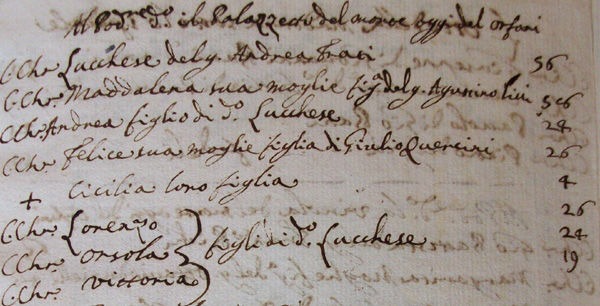 Al Pod.re d.o il Palazzetto del monte oggi dal orfani
C.Chr. Lucchese del q. Andrea Traci 56
C.Chr. Maddalena sua moglie fig.a del q. Agustino 56
C.Chr. Andrea figlio di d.o Lucchese 24
C.Chr. Felice sua moglie figlia di Giulio Quercini 26
+ Cicilia loro figlia 4
C.Chr. Lorenzo 26
C.Chr. Orsola figli di d.o Lucchese 24
C.Chr. Vittoria 19